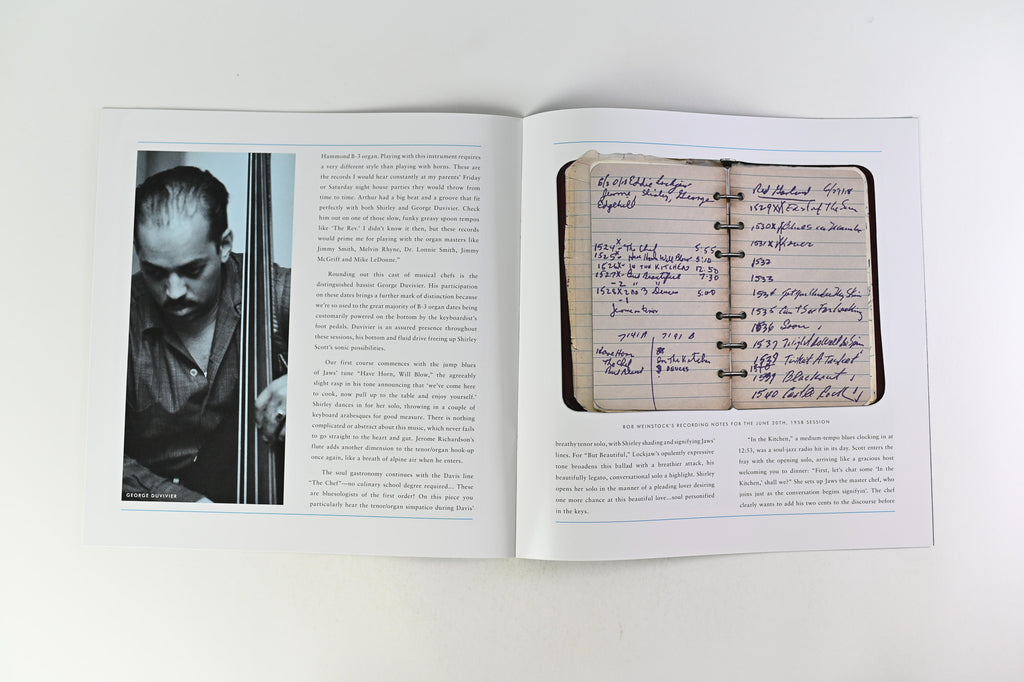 Hammond B-3 organ. Playing with this instrument requires
a very different style than playing with horns. These are
the records I would hear constantly at my parents' Friday
or Saturday night house parties they would throw from
time to time. Arthur had a big beat and a groove that fit
perfectly with both Shirley and George Duvivier. Check
him out on one of those slow, funky greasy spoon tempos
like 'The Rev.' I didn't know it then, but these records
would prime me for playing with the organ masters like
Jimmy Smith, Melvin Rhyne, Dr. Lonnie Smith, Jimmy
McGriff and Mike LeDonne."
Rounding out this cast of musical chefs is the
distinguished bassist George Duvivier. His participation
on these dates brings a further mark of distinction because
we're so used to the great majority of B-3 organ dates being
customarily powered on the bottom by the keyboardist's
foot pedals. Duvivier is an assured presence throughout
these sessions, his bottom and fluid drive freeing up Shirley
Scott's sonic possibilities.
Our first course commences with the jump blues
of Jaws' tune "Have Horn, Will Blow," the agreeably
slight rasp in his tone announcing that 'we've come here
to cook, now pull up to the table and enjoy yourself.'
Shirley dances in for her solo, throwing in a couple of
keyboard arabesques for good measure. There is nothing
complicated or abstract about this music, which never fails
to go straight to the heart and gut. Jerome Richardson's
flute adds another dimension to the tenor/organ hook-up
once again, like a breath of alpine air when he enters.
The soul gastronomy continues with the Davis line
"The Chef"—no culinary school degree required... These
are bluesologists of the first order! On this piece you
particularly hear the tenor/organ simpatico during Davis'
GEORGE DUVIVIER
6/20/58 Eddie Lockjaw
Jerome, Shirley, George
Edgehill
1524 X - The Chef 5:55
1525 - Have Horn Will Blow 5:10
1526X - IN THE KITCHEN 12:50
1527X - But Beautiful 7:30
-2 " "
1528X 2 3 Deuces 5:00
-1
7141 A 7141 B
Have Horn
The Chef
But Beaut
In The Kitchen
3 Deuces
Red Garland 6/27/58
1529X East of the Sun
1530X Blues in
1531X
1532
1533
1534 Got You Under My Skin
1535 Can't See For Looking
1536 Soon
1537
1538
1539 Blackout
1540 Castle Rock
BOB WEINSTOCK'S RECORDING NOTES FOR THE JUNE 20TH, 1958 SESSION
breathy tenor solo, with Shirley shading and signifying Jaws'
lines. For "But Beautiful," Lockjaw's opulently expressive
tone broadens this ballad with a breathier attack, his
beautifully legato, conversational solo a highlight. Shirley
opens her solo in the manner of a pleading lover desiring
one more chance at this beautiful love...soul personified
in the keys.
"In the Kitchen," a medium-tempo blues clocking in at
12:53, was a soul-jazz radio hit in its day. Scott enters the
fray with the opening solo, arriving like a gracious host
welcoming you to dinner: "First, let's chat some 'In the
Kitchen,' shall we?" She sets up Jaws the master chef, who
joins just as the conversation begins signifyin'. The chef
clearly wants to add his two cents to the discourse before